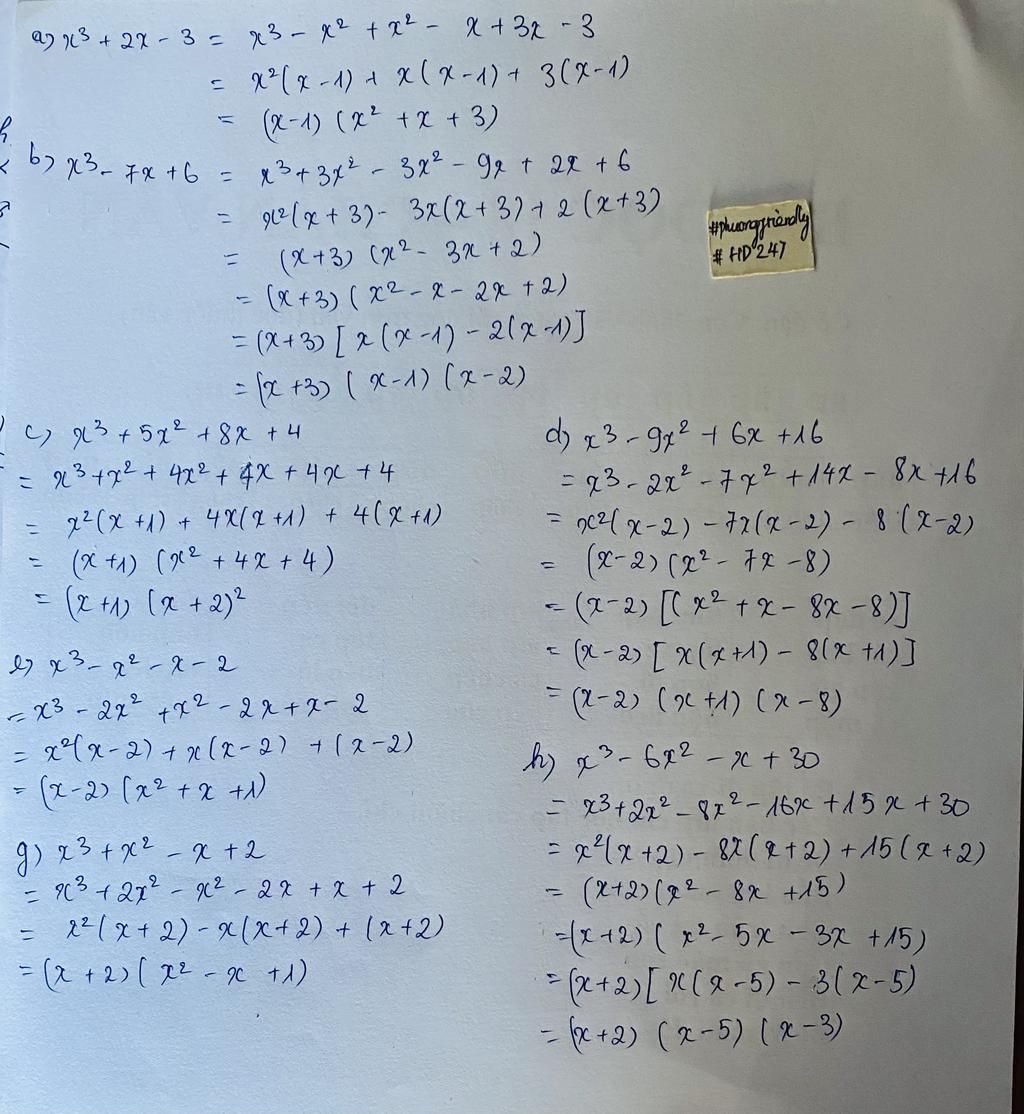 a) x³ + 2x - 3 = x³ - x² + x² - x + 3x - 3
= x²(x - 1) + x(x - 1) + 3(x - 1)
= (x - 1) (x² + x + 3)
b) x³ - 7x + 6 = x³ + 3x² - 3x² - 9x + 2x + 6
= x²(x + 3) - 3x(x + 3) + 2(x + 3)
= (x + 3) (x² - 3x + 2)
= (x + 3) (x² - x - 2x + 2)
= (x + 3) [x(x - 1) - 2(x - 1)]
= (x + 3) (x - 1) (x - 2)
#phuongfriendly
# HD 247
c) x³ + 5x² + 8x + 4
= x³ + x² + 4x² + 4x + 4x + 4
= x²(x + 1) + 4x(x + 1) + 4(x + 1)
= (x + 1) (x² + 4x + 4)
= (x + 1) (x + 2)²
e) x³ - x² - x - 2
= x³ - 2x² + x² - 2x + x - 2
= x²(x - 2) + x(x - 2) + (x - 2)
= (x - 2) (x² + x + 1)
g) x³ + x² - x + 2
= x³ + 2x² - x² - 2x + x + 2
= x²(x + 2) - x(x + 2) + (x + 2)
= (x + 2) (x² - x + 1)
d) x³ - 9x² + 6x + 16
= x³ - 2x² - 7x² + 14x - 8x + 16
= x²(x - 2) - 7x(x - 2) - 8(x - 2)
= (x - 2) (x² - 7x - 8)
= (x - 2) [(x² + x - 8x - 8)]
= (x - 2) [x(x + 1) - 8(x + 1)]
= (x - 2) (x + 1) (x - 8)
h) x³ - 6x² - x + 30
= x³ + 2x² - 8x² - 16x + 15x + 30
= x²(x + 2) - 8x(x + 2) + 15(x + 2)
= (x + 2) (x² - 8x + 15)
= (x + 2) (x² - 5x - 3x + 15)
= (x + 2) [x(x - 5) - 3(x - 5)
= (x + 2) (x - 5) (x - 3)